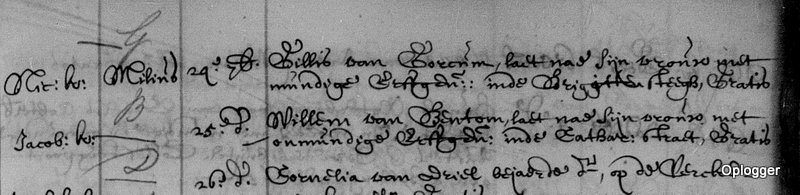 G
Nic: ko: Milius 24.e 7b. Gillis van Gorcum, laet nae sijn vrouw met
mundige Erfgen:: inde Brigitten steegh, Gratis
B
Jacob: ko: 25.e d. Willem van Bentom, laet nae sijn vrouw met
onmundige Erfgen:: inde Cathar: straet, Gratis
D
26.e d. Cornelia van Driel bejaerde dr, op de
Oplogger